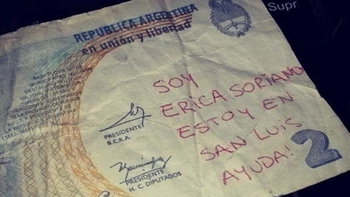 Supr
REPUBLICA ARGENTINA
en unión y libertad
SOY
ERICA SORIANO
ESTOY EN
SAN LUIS
AYUDA!
2
PRESIDENTE
B.C.R.A.
PRESIDENTE
H. C. DIPUTADOS